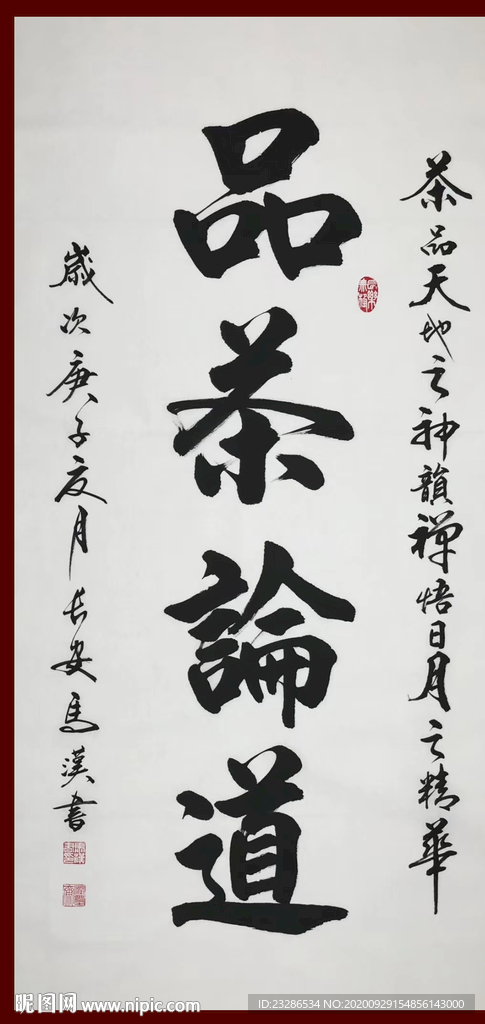 茶品天地之神韻禪悟日月之精華
品茶論道
歲次庚子夏月長安馬漢書
昵图网 www.nipic.com
ID:23286534 NO:20200929154856143000